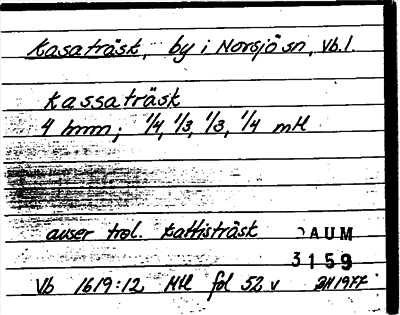 Kasaträsk, by i Norsjö sn, Vb.l.
Kassaträsk
4 hmn; 1/4, 1/3, 1/3, 1/4 mtl
avser trol. Kattisträsk
DAUM
3159
Vb 1619:12, Mtl fol 52 v